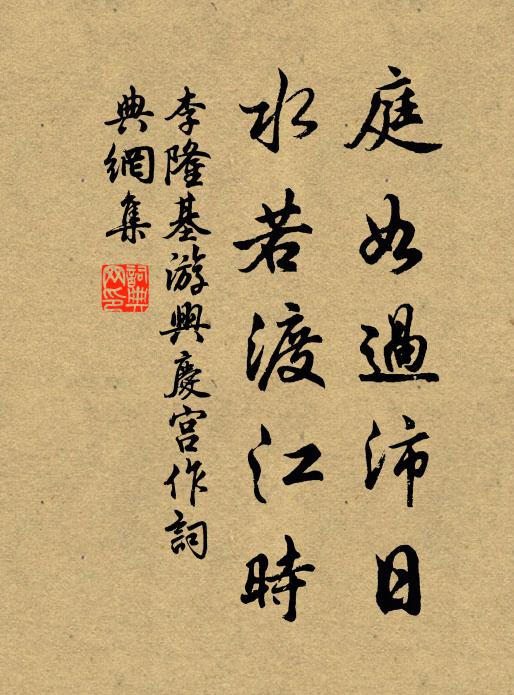 庭如過沛日
水若渡江時
李隆基游興慶宮作詞
典網集
詞典
网印